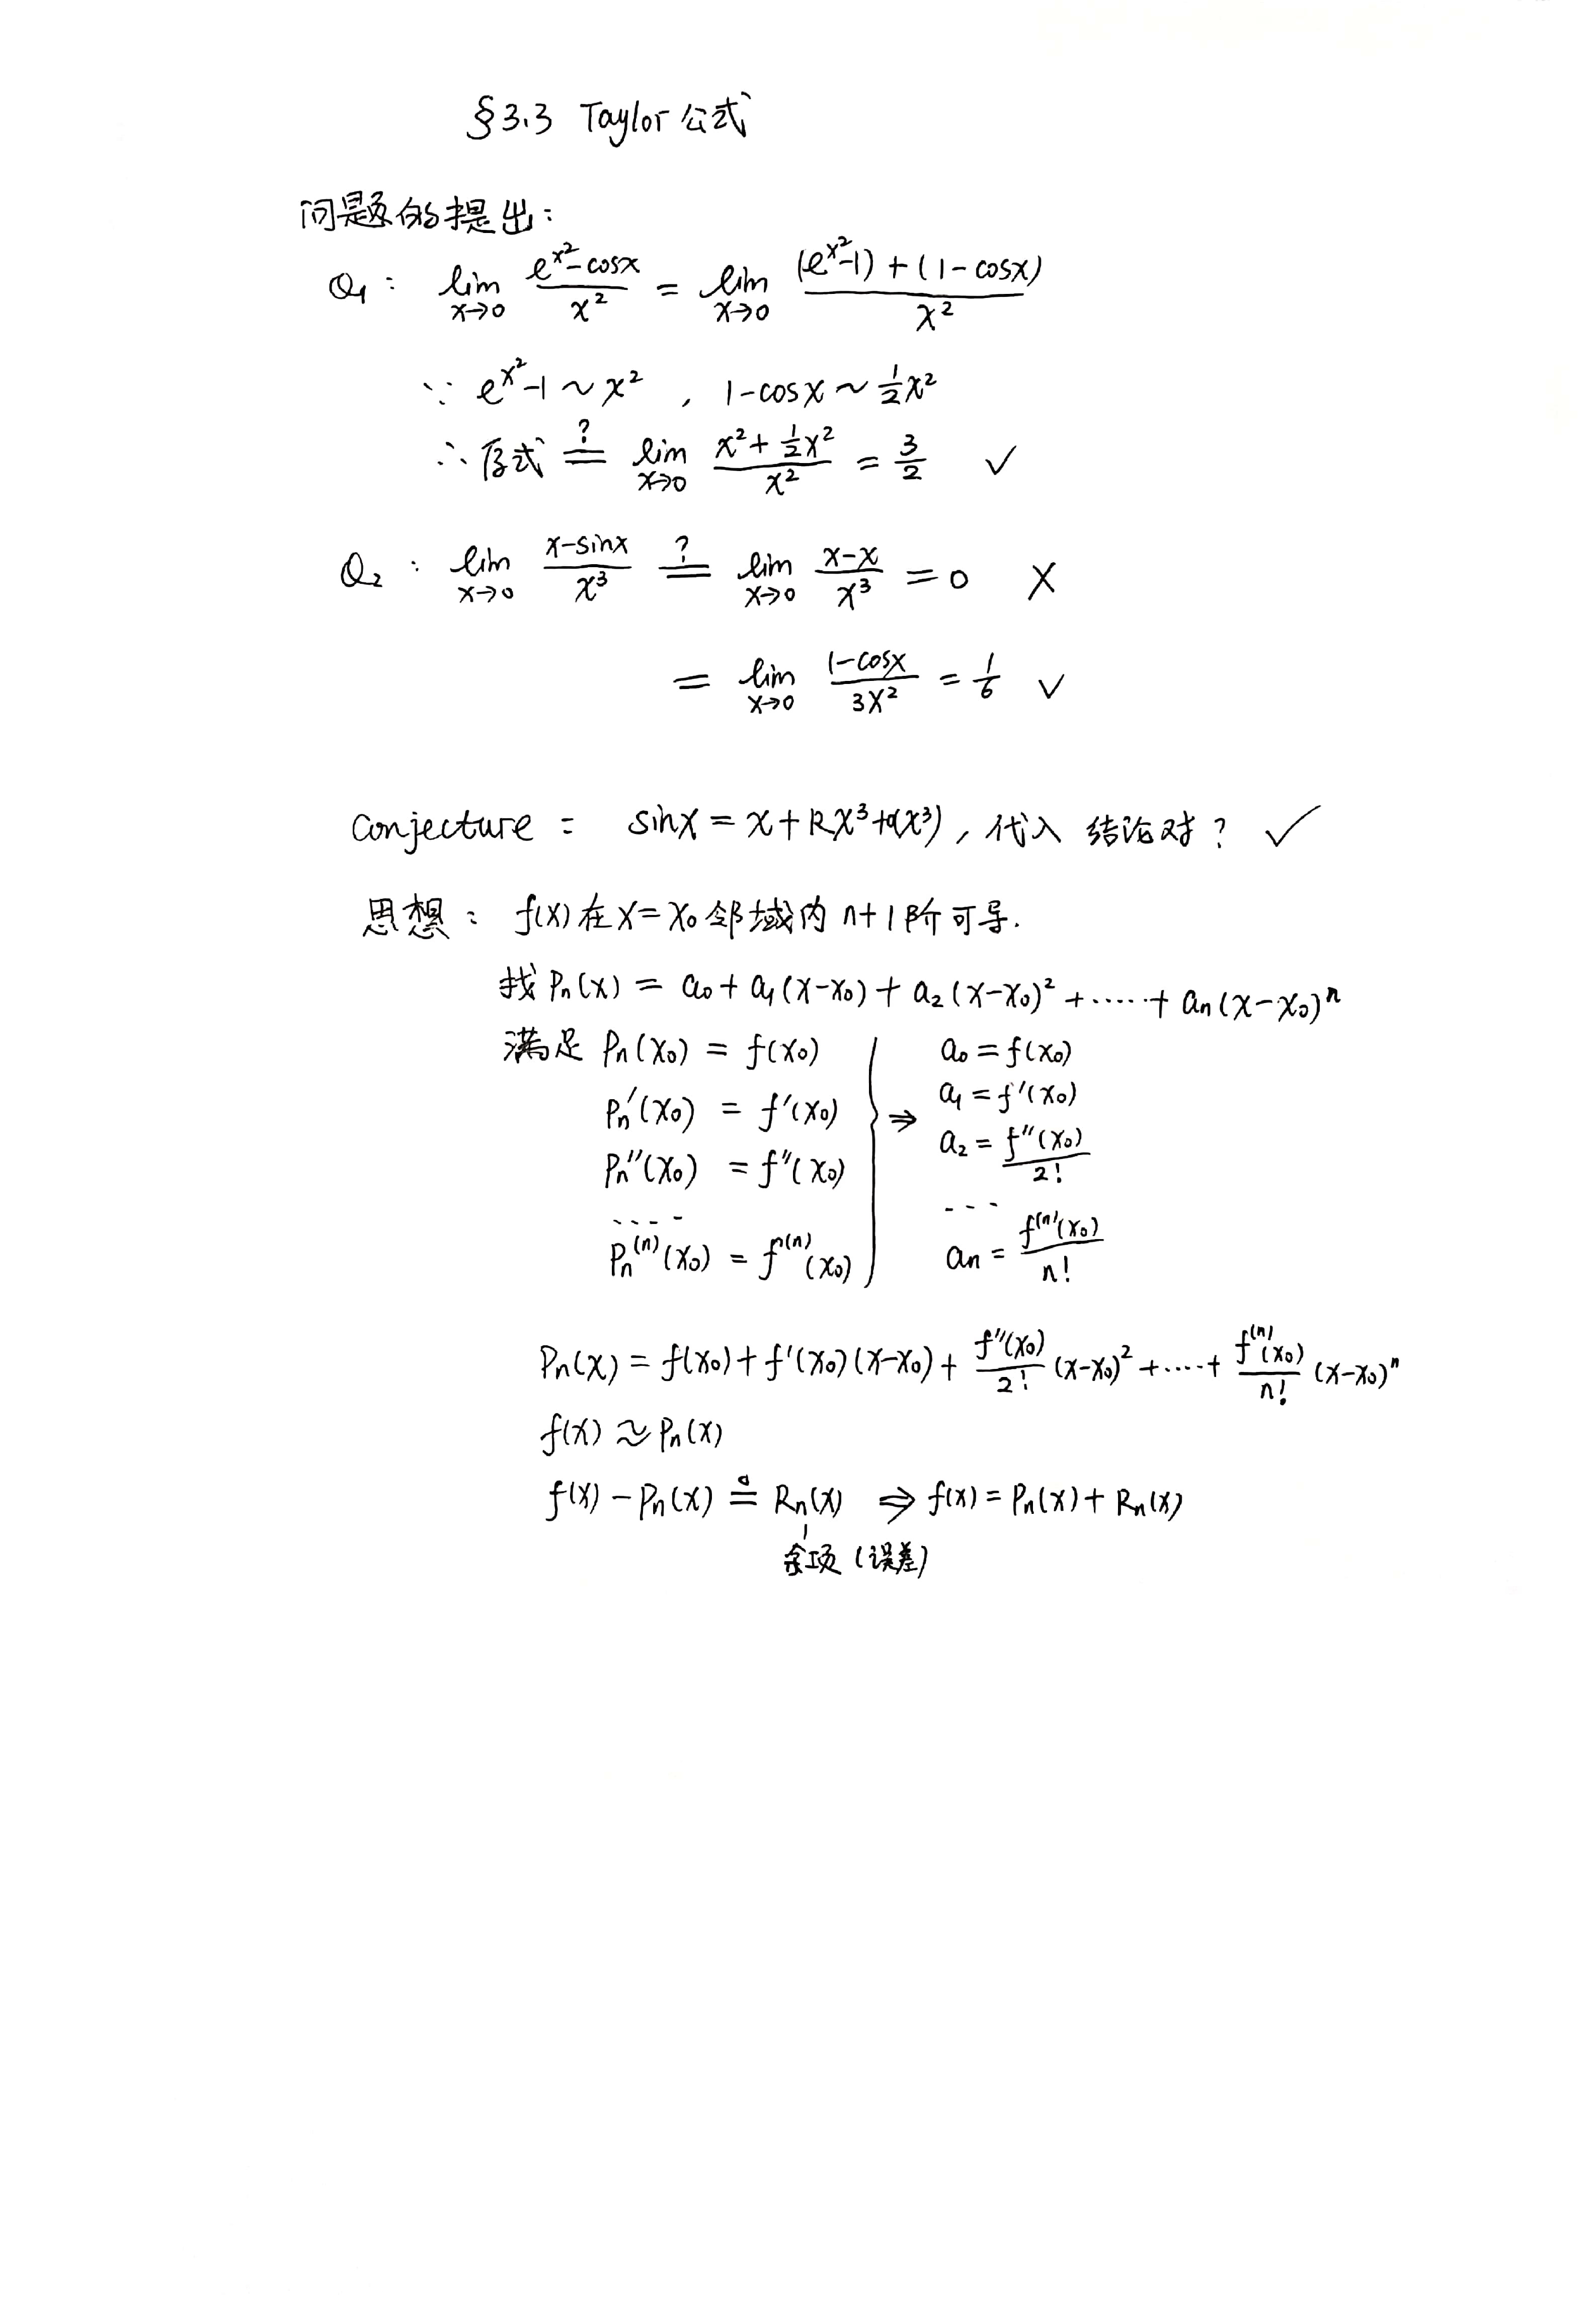 §3.3 Taylor公式
问题的提出:
Q₁: lim_{x→0} (e^{x²}-cosx)/x² = lim_{x→0} ((e^{x²}-1)+(1-cosx))/x²
∵ e^{x²}-1 ~ x² , 1-cosx ~ ½x²
∴ 原式 =^? lim_{x→0} (x²+½x²)/x² = 3/2 ✓
Q₂: lim_{x→0} (x-sinx)/x³ =^? lim_{x→0} (x-x)/x³ = 0 ×
= lim_{x→0} (1-cosx)/(3x²) = 1/6 ✓
Conjecture: sinx = x+kx³+o(x³), 代入 结论对? ✓
思想: f(x)在x=x₀邻域内 n+1阶可导.
找 Pₙ(x) = a₀+a₁(x-x₀)+a₂(x-x₀)²+……+aₙ(x-x₀)ⁿ
满足 Pₙ(x₀) = f(x₀) } a₀ = f(x₀)
Pₙ'(x₀) = f'(x₀) ⇒ a₁ = f'(x₀)
Pₙ''(x₀) = f''(x₀) a₂ = f''(x₀)/2!
.... ...
Pₙ^{(n)}(x₀) = f^{(n)}(x₀) aₙ = f^{(n)}(x₀)/n!
Pₙ(x) = f(x₀)+f'(x₀)(x-x₀)+f''(x₀)/2! (x-x₀)²+……+f^{(n)}(x₀)/n! (x-x₀)ⁿ
f(x) ≈ Pₙ(x)
f(x)-Pₙ(x) ≜ Rₙ(x) ⇒ f(x) = Pₙ(x)+Rₙ(x)
余项(误差)